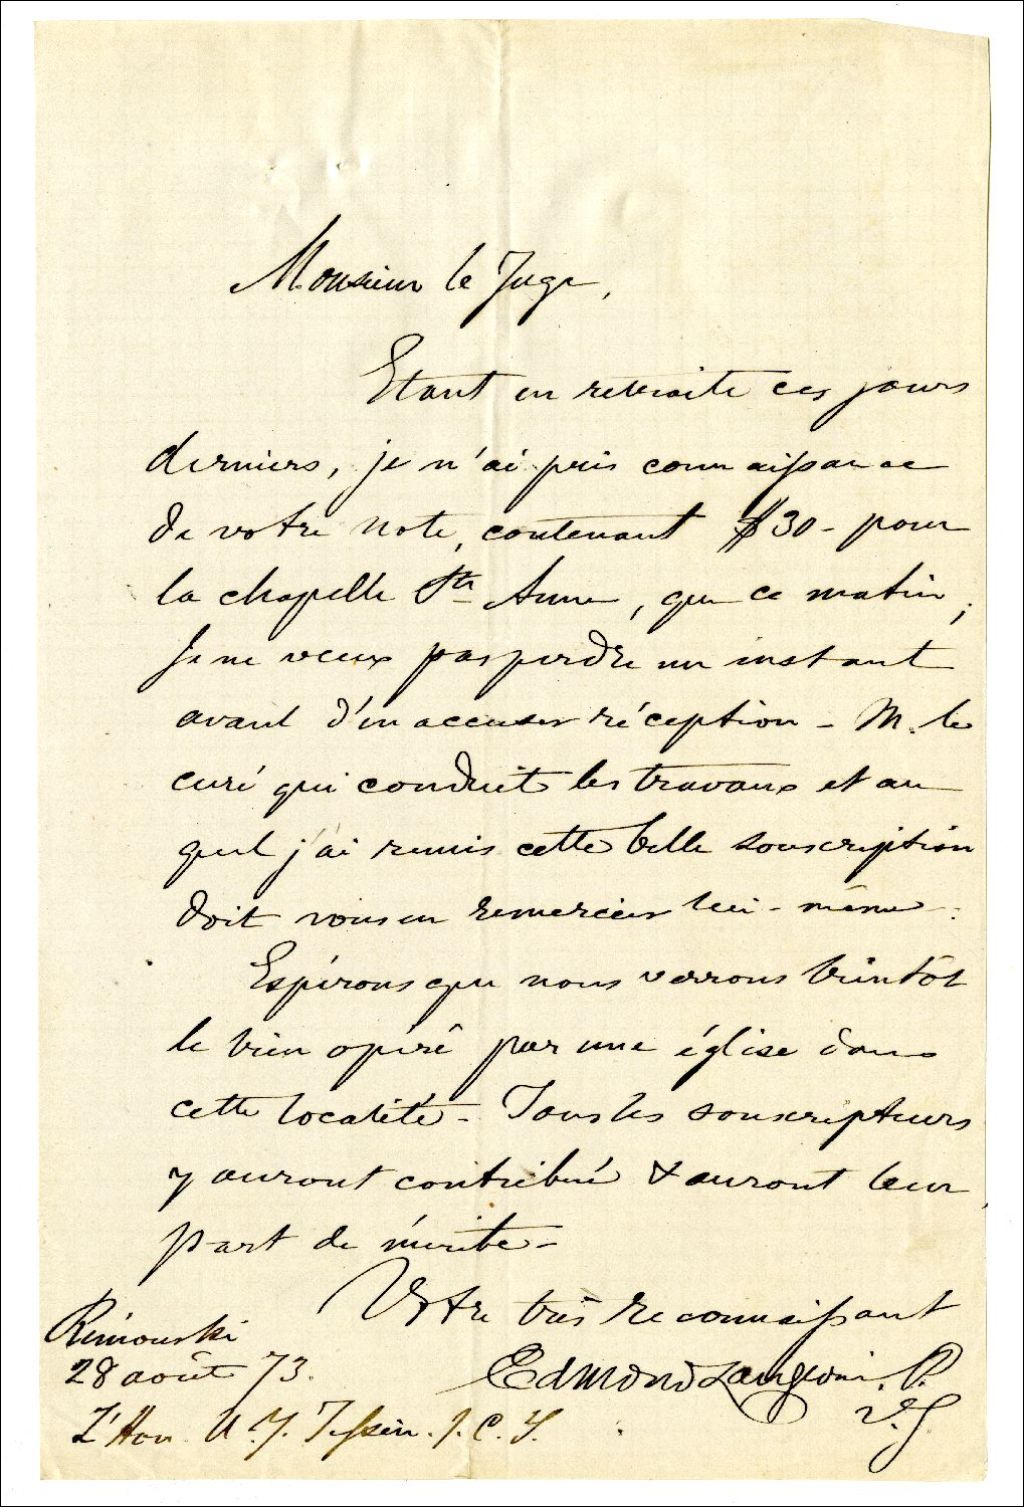 Monsieur le Juge,
Etant en retraite ces jours
derniers, je n'ai pris connaissance
de votre note, contenant $30 - pour
la chapelle Ste Anne, que ce matin;
Je ne veux pas perdre un instant
avant d'en accuser réception - M. le
curé qui conduit les travaux et au
quel j'ai remis cette belle souscription
doit vous en remercier lui-même.
Espérons que nous verrons bientôt
le bien opéré par une église dans
cette localité - Tous les souscripteurs
y auront contribué & auront leur
part de mérite -
Votre très reconnaissant
Edmond Langevin. P.
V.G.
Rimouski
28 août 73.
L'Hon. U. J. Tessier. J. C. S.